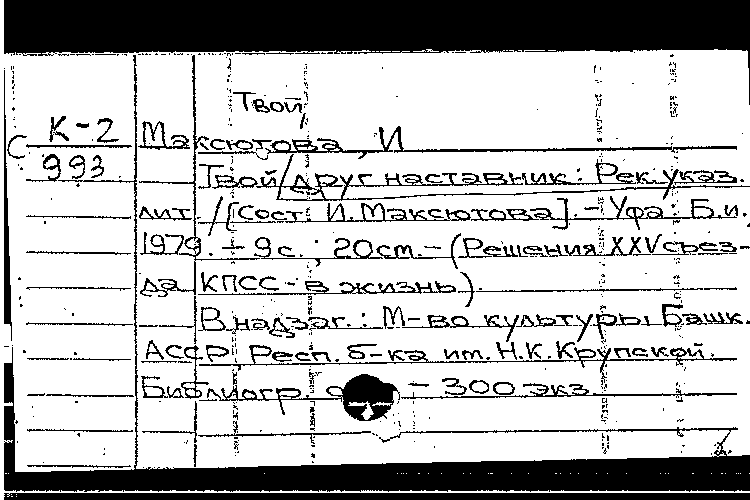 Твой,
К-2 Максютова, И
993 Твой / друг наставник: Рек. указ.
лит. / [Сост: И. Максютова]. - Уфа: Б.и.,
1979. - 9 с.; 20 cm. - (Решения XXV съез-
да КПСС - в жизнь).
В надзаг.: М-во культуры Башк.
АССР, Респ. б-ка им. Н.К. Крупской.
Библиогр. - 300 экз.